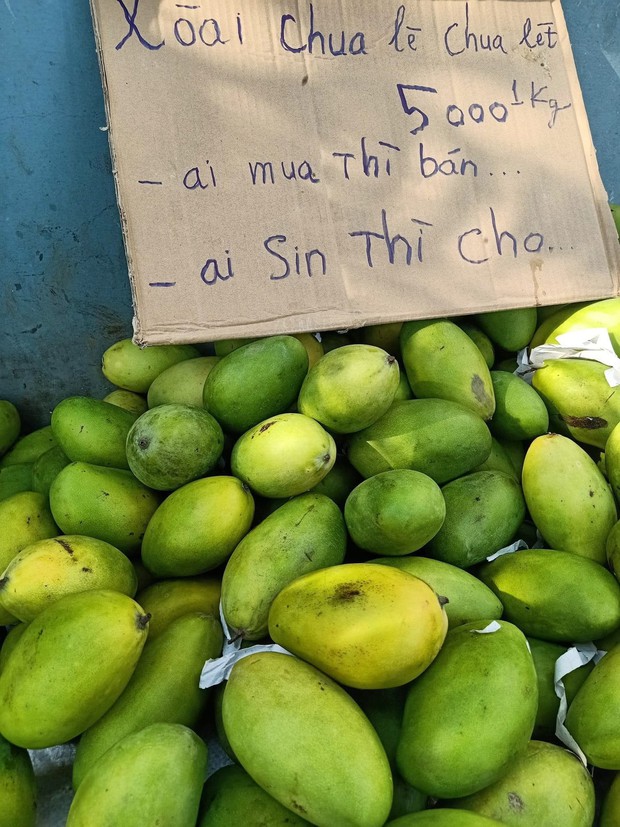 Xoài chua lè chua lét
5000 1Kg
- ai mua Thì bán...
- ai Sin Thì Cho...